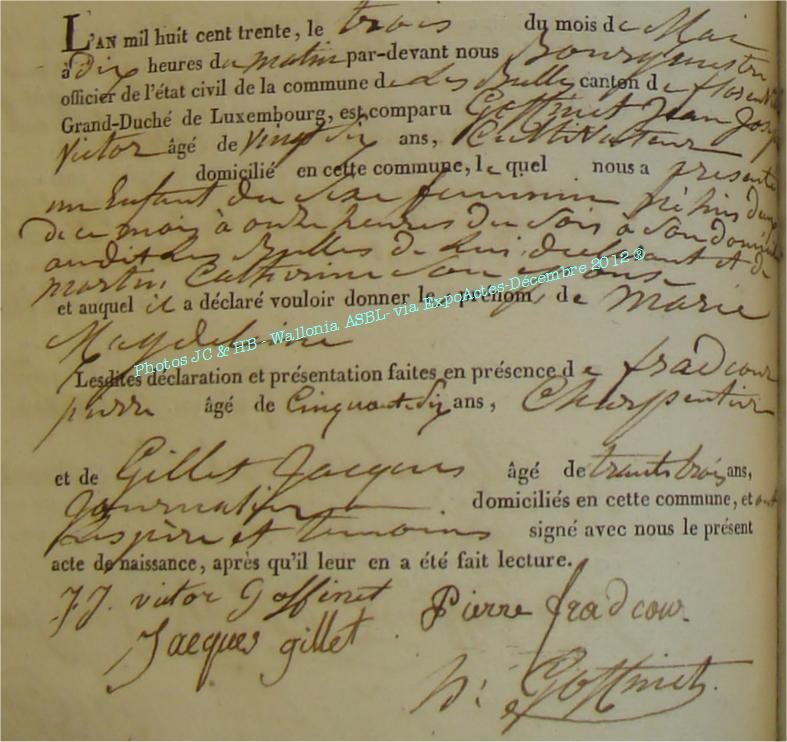 L'AN mil huit cent trente, le trois du mois de Mai
à dix heures du matin par-devant nous Bourgmestre
officier de l'état civil de la commune de Les Bulles canton de florenville
Grand-Duché de Luxembourg, est comparu Goffinet Jean Joseph
Victor âgé de vingt six ans, Cultivateur
domicilié en cette commune, lequel nous a presenté
un Enfant du sexe feminin né hier deux
de ce mois à onze heures du soir à son domicile
audit Les Bulles de lui déclarant et de
martin Catherine son épouse
et auquel il a déclaré vouloir donner le prénom de Marie
Magdeleine
Lesdites déclaration et présentation faites en présence de fradcour
pierre âgé de Cinquante six ans, Charpentier
et de Gillet Jacques âgé de trente trois ans,
Journalier domiciliés en cette commune, et ont
Les père et temoins signé avec nous le présent
acte de naissance, après qu'il leur en a été fait lecture.
J J. victor Goffinet Pierre fradcour
Jacques gillet
Goffinet
Photos JC & HB - Wallonia ASBL- via ExpoActes-Décembre 2012 ®